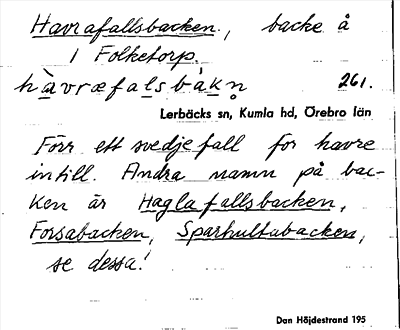 Havrafallsbacken, backe å
1 Folketorp.
hàvræfalsbák̥n 261.
Lerbäcks sn, Kumla hd, Örebro län
Förr ett svedjefall för havre
intill. Andra namn på bac-
ken är Haglafallsbacken,
Forsabacken, Sparhultabacken,
se dessa!
Dan Höjdestrand 195